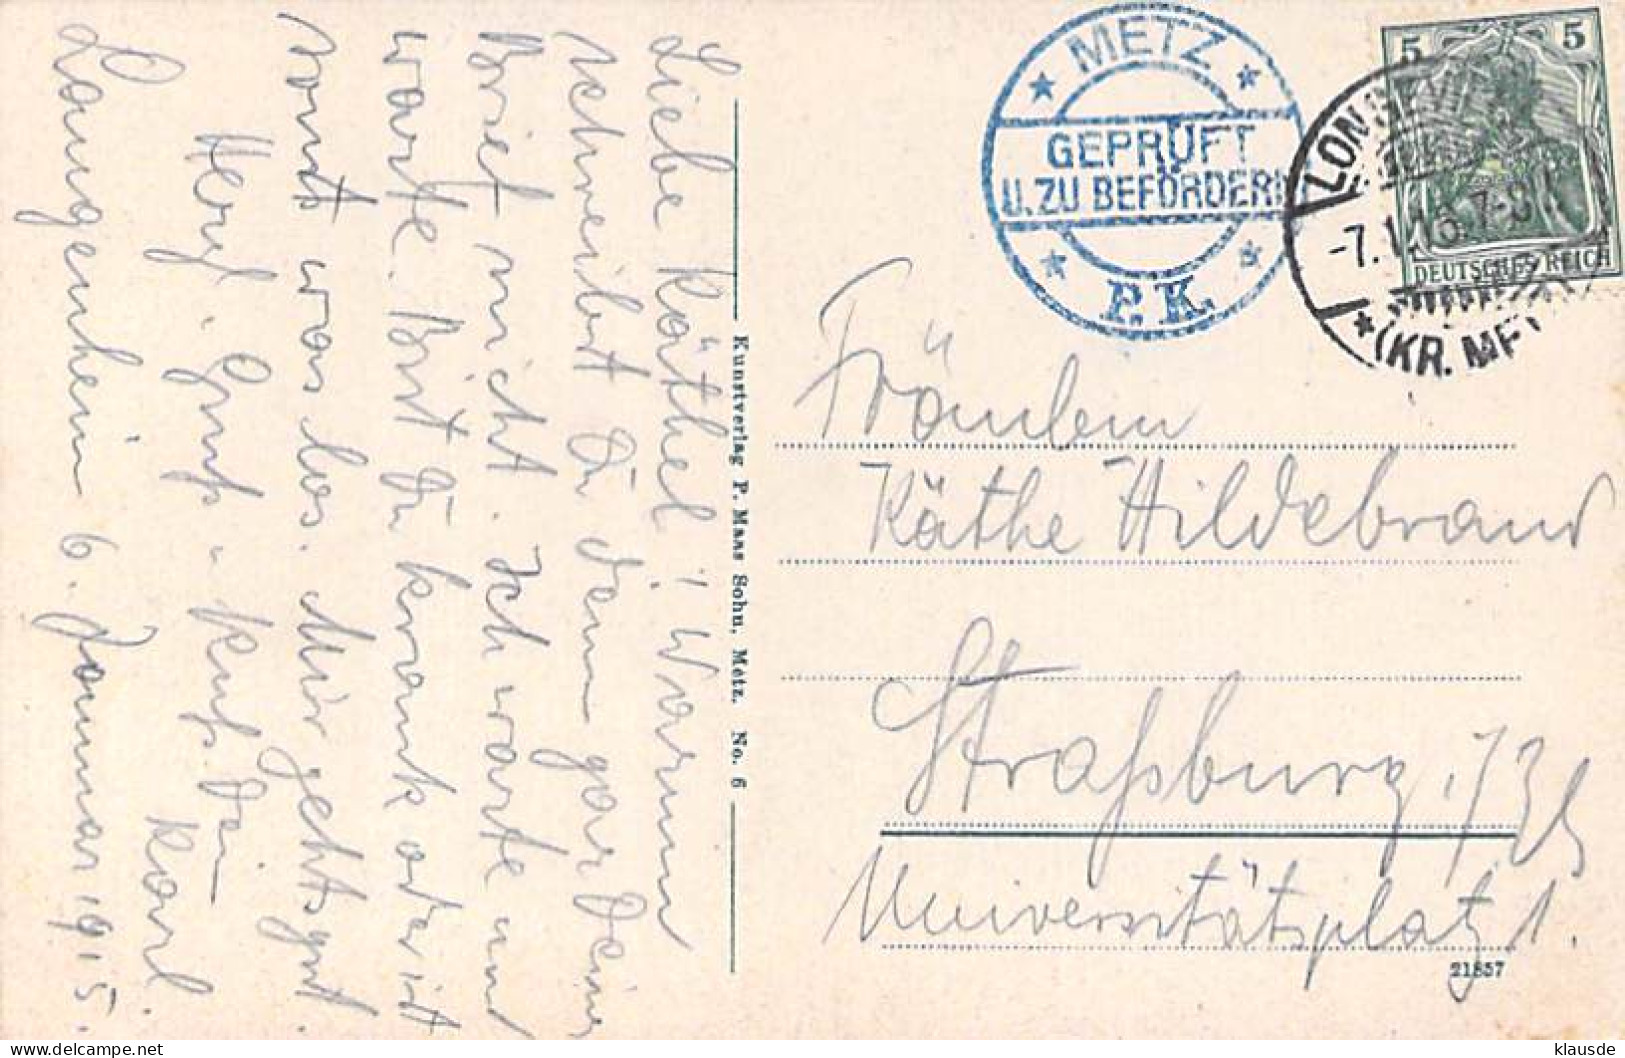 Liebe Käthel! Warum
schreibst Du denn gar Deinen
Brief nicht. Ich warte und
warte. Bist Du krank oder ist
sonst was los. Mir geht's gut.
Herzl. Gruß u. Kuß Dein
Karl.
Longenheim 6. Januar 1915.
Kunstverlag P. Maas Sohn, Metz. No. 6
METZ
GEPRÜFT
U. ZU BEFÖRDERN
P. K.
5 5
DEUTSCHES REICH
-7.1.15.7-8
* (KR. METZ)
Fräulein
Käthe Hildebrand
Straßburg i/Els
Universitätsplatz 1.
21857
klausde